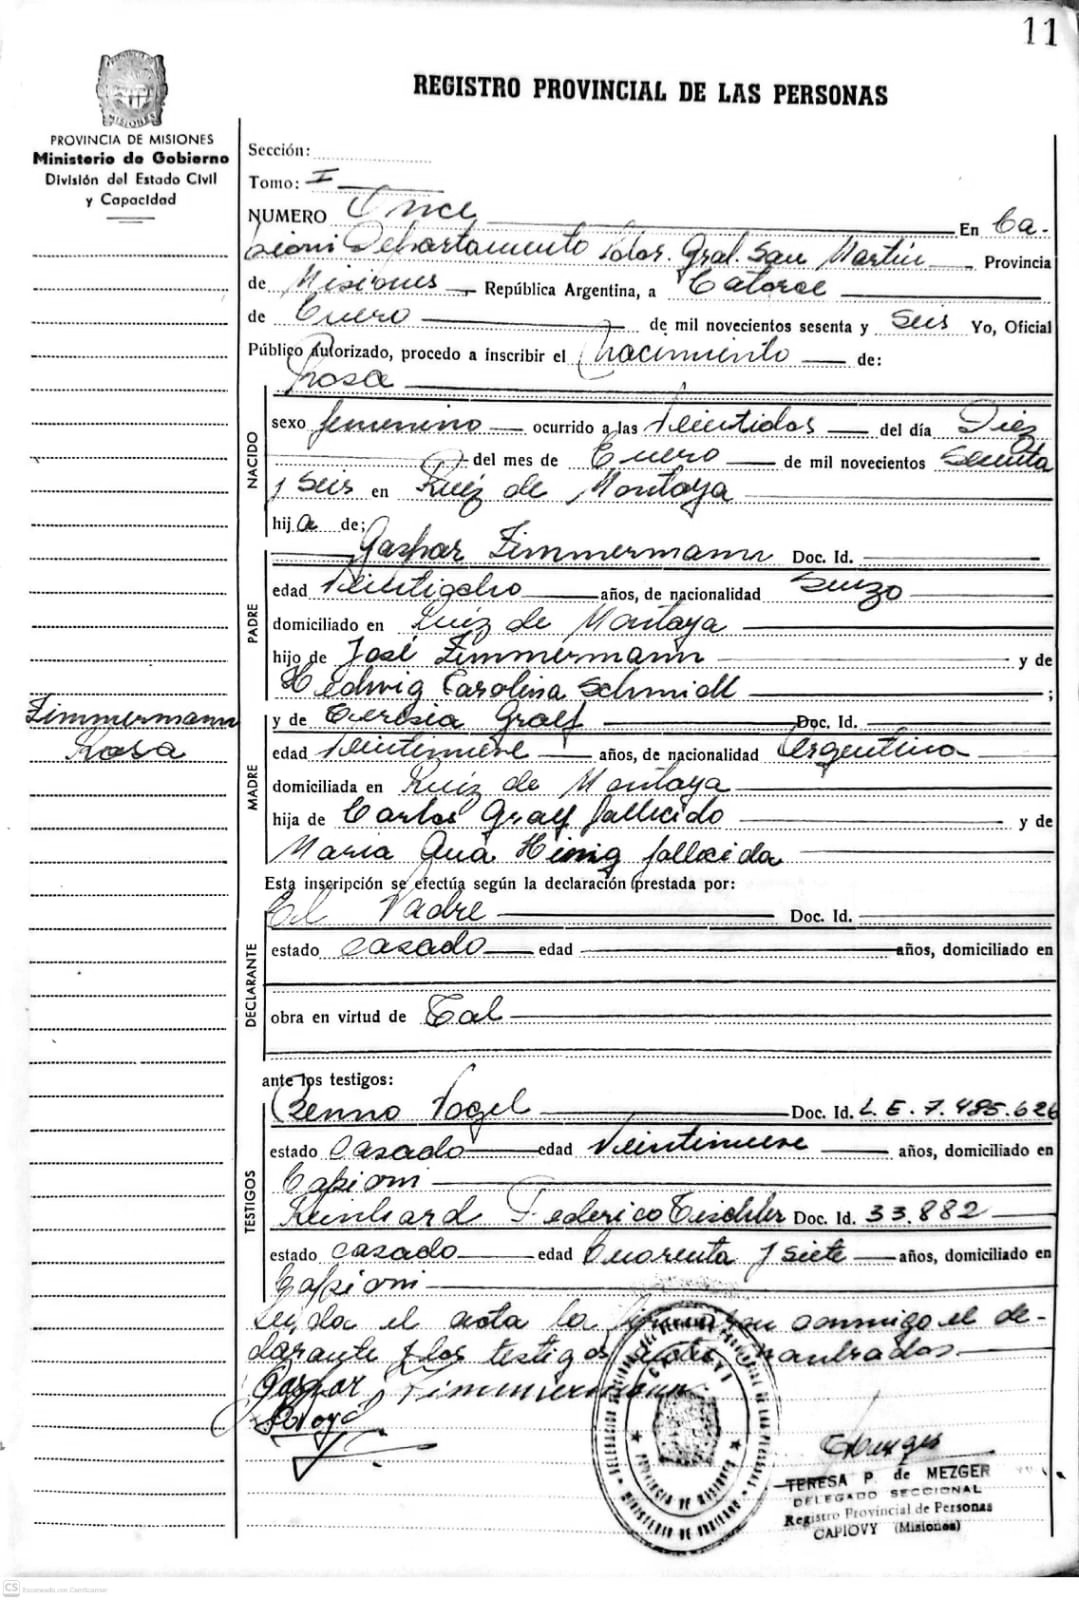 11
REGISTRO PROVINCIAL DE LAS PERSONAS
PROVINCIA DE MISIONES
Ministerio de Gobierno
División del Estado Civil
y Capacidad
Sección:
Tomo: I
NUMERO Once En Ca-
pioni Departamento Ldor. Gral. San Martin Provincia
de Misiones República Argentina, a Catorce
de Enero de mil novecientos sesenta y Seis Yo, Oficial
Público Autorizado, procedo a inscribir el Nacimiento de:
Rosa
NACIDO
sexo femenino ocurrido a las Veintidos del día Diez
del mes de Enero de mil novecientos Sesenta
y Seis en Ruiz de Montoya
hija de;
PADRE
Gaspar Zimmermann Doc. Id.
edad Veintiocho años, de nacionalidad Suizo
domiciliado en Ruiz de Montoya
hijo de José Zimmermann y de
Hedwig Carolina Schmidl ;
Zimmermann
Rosa
MADRE
y de Teresia Graef Doc. Id.
edad Veintinueve años, de nacionalidad Argentina
domiciliada en Ruiz de Montoya
hija de Carlos Graef fallecido y de
Maria Ana Hinig fallecida
Esta inscripción se efectúa según la declaración prestada por:
DECLARANTE
El Padre Doc. Id.
estado Casado edad años, domiciliado en
obra en virtud de Tal
ante los testigos:
TESTIGOS
Benno Vogel Doc. Id. L.E.7.485.626
estado Casado edad Veintinueve años, domiciliado en
Capioni
Reinhard Federico Tischler Doc. Id. 33.882
estado Casado edad Cuarenta y siete años, domiciliado en
Capioni
Leida el acta la firman conmigo el de-
clarante y los testigos nombrados
Gaspar Zimmermann
B. Vogel
DELEGACION SECCIONAL DEL REGISTRO PROVINCIAL DE LAS PERSONAS
CAPIOVY
PROVINCIA DE MISIONES
MINISTERIO DE GOBIERNO
TERESA P. de MEZGER
DELEGADO SECCIONAL
Registro Provincial de Personas
CAPIOVY (Misiones)
CS Escaneado con CamScanner